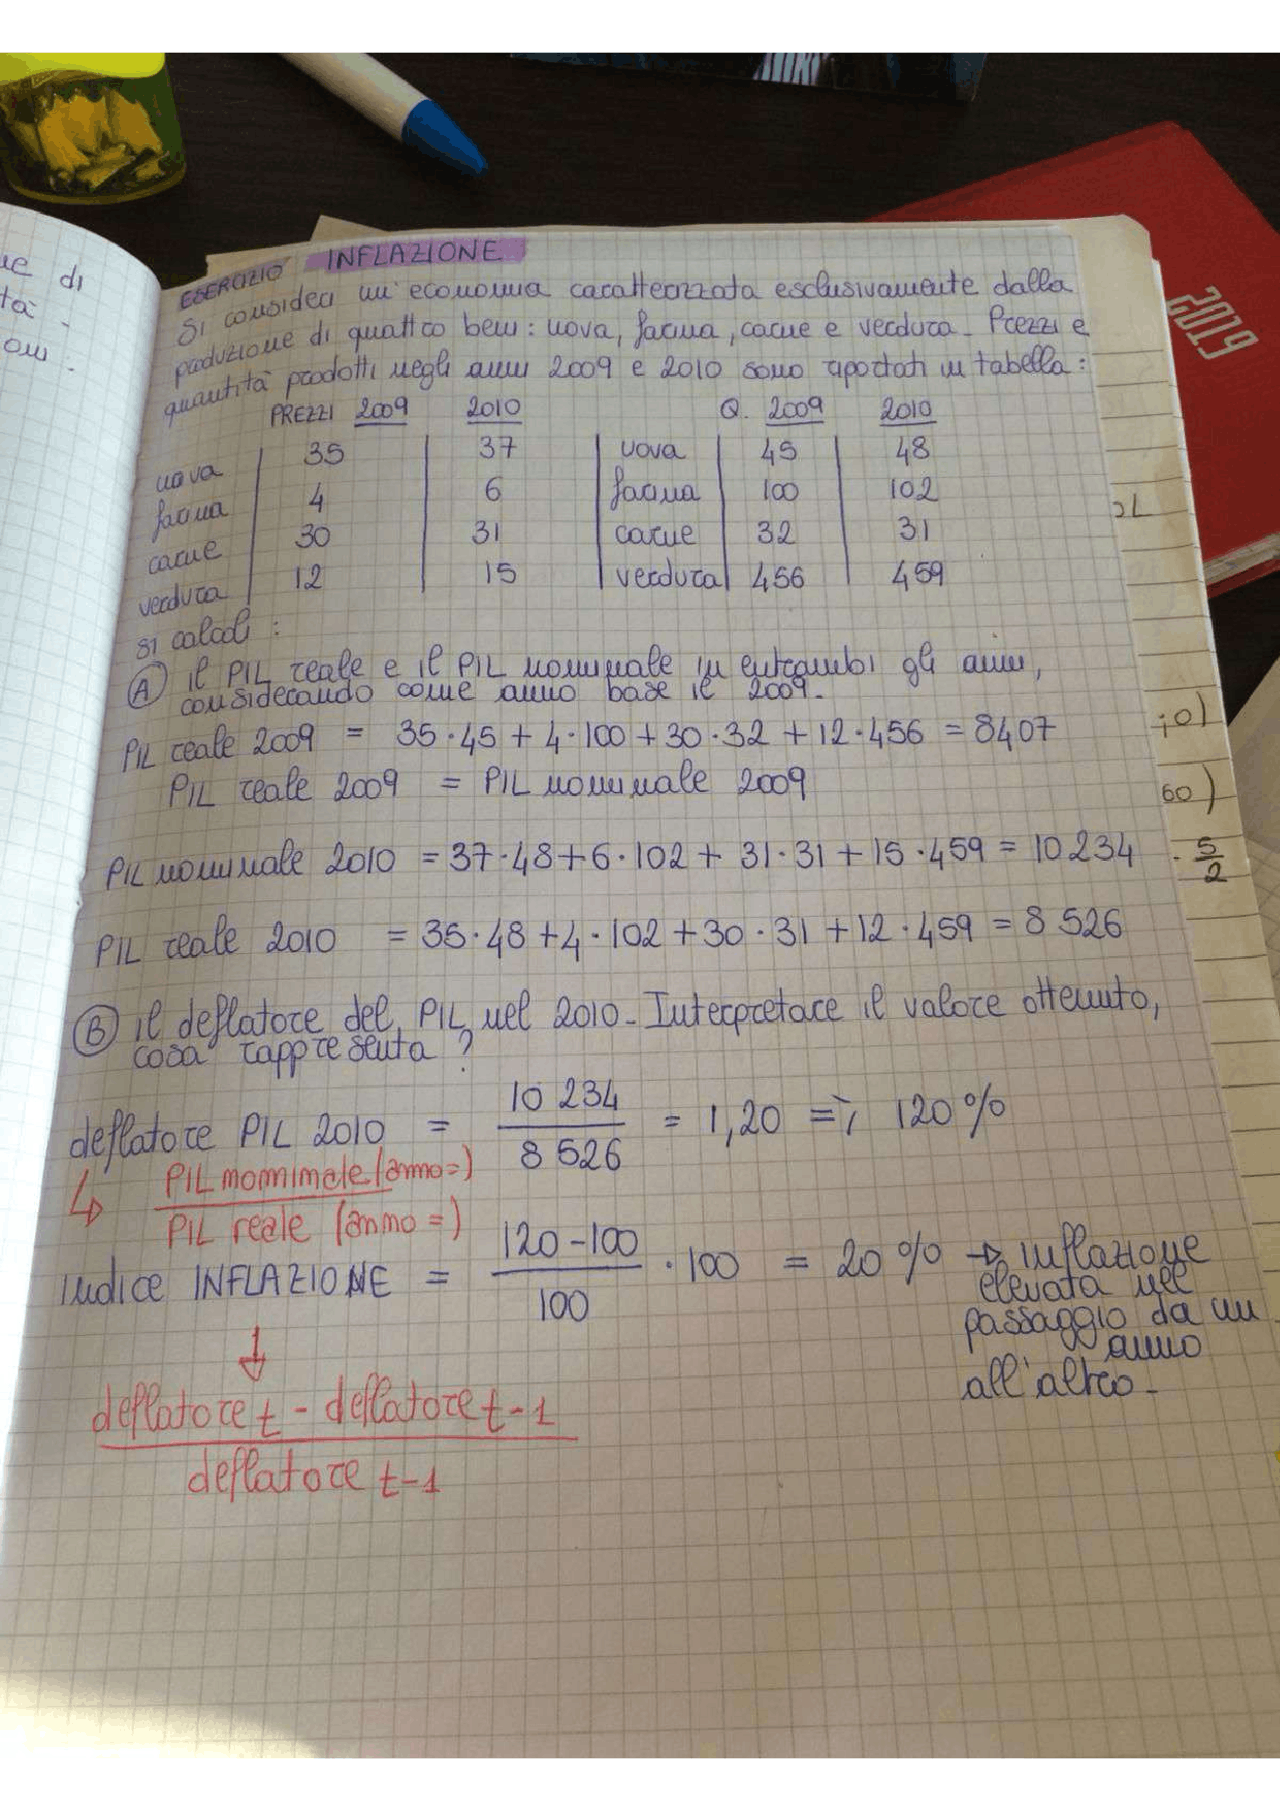 ue di
tà.
oni.
2019
ESERCIZIO INFLAZIONE
Si consideri un'economia caratterizzata esclusivamente dalla
produzione di quattro beni: uova, farina, carne e verdura. Prezzi e
quantità prodotti negli anni 2009 e 2010 sono riportati in tabella:
PREZZI 2009 2010 Q. 2009 2010
uova 35 37 uova 45 48
farina 4 6 farina 100 102
carne 30 31 carne 32 31
verdura 12 15 verdura 456 459
si calcoli:
A il PIL reale e il PIL nominale in entrambi gli anni,
considerando come anno base il 2009.
PIL reale 2009 = 35·45 + 4·100 + 30·32 + 12·456 = 8407
PIL reale 2009 = PIL nominale 2009
PIL nominale 2010 = 37·48 + 6·102 + 31·31 + 15·459 = 10 234
PIL reale 2010 = 35·48 + 4·102 + 30·31 + 12·459 = 8 526
B il deflatore del PIL nel 2010. Interpretare il valore ottenuto,
cosa rappresenta?
deflatore PIL 2010 = 10 234 / 8 526 = 1,20 => 120%
↳ PIL nominale (anno =)
PIL reale (anno =)
Indice INFLAZIONE = 120-100 / 100 · 100 = 20% → inflazione
elevata nel
passaggio da un
anno
all'altro.
↓
deflatore t - deflatore t-1
deflatore t-1
60)
5
2